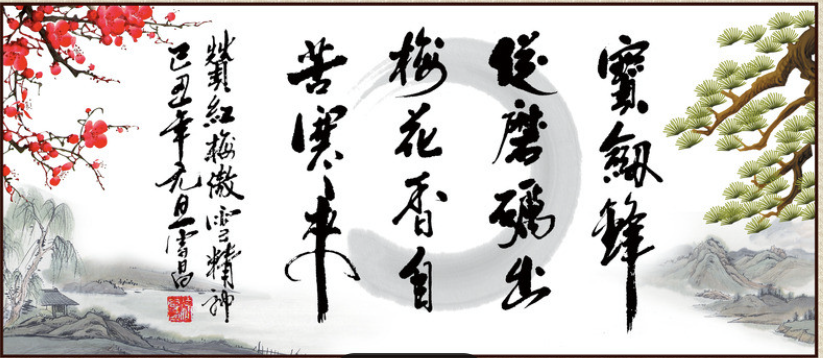 寶劍鋒
從磨礪出
梅花香自
苦寒來
贊紅梅傲雪精神
己丑年元旦